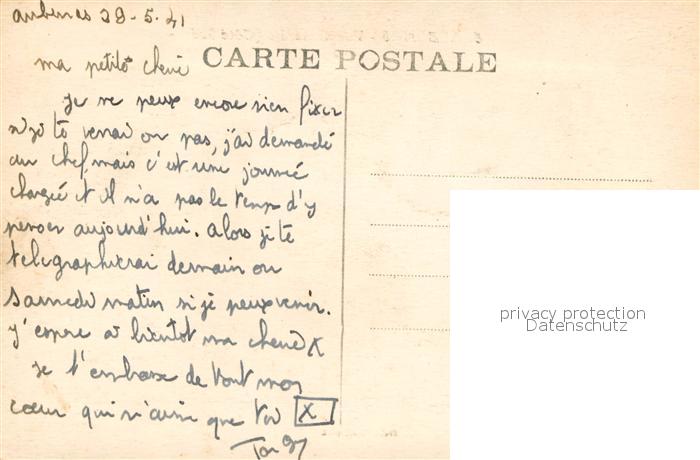 Aubenas 29-5-41
CARTE POSTALE
ma petite cherie
je ne peux encore rien fixer
si je te verai ou pas, j'ai demandé
au chef, mais c'est une journé
chargée et il n'a pas le temps d'y
penser aujourd'hui. alors je te
telegraphierai demain ou
samedi matin si je peux venir.
j'espere à bientot ma cherie x
je t'embrasse de tout mon
coeur qui n'aime que toi x
privacy protection
Datenschutz